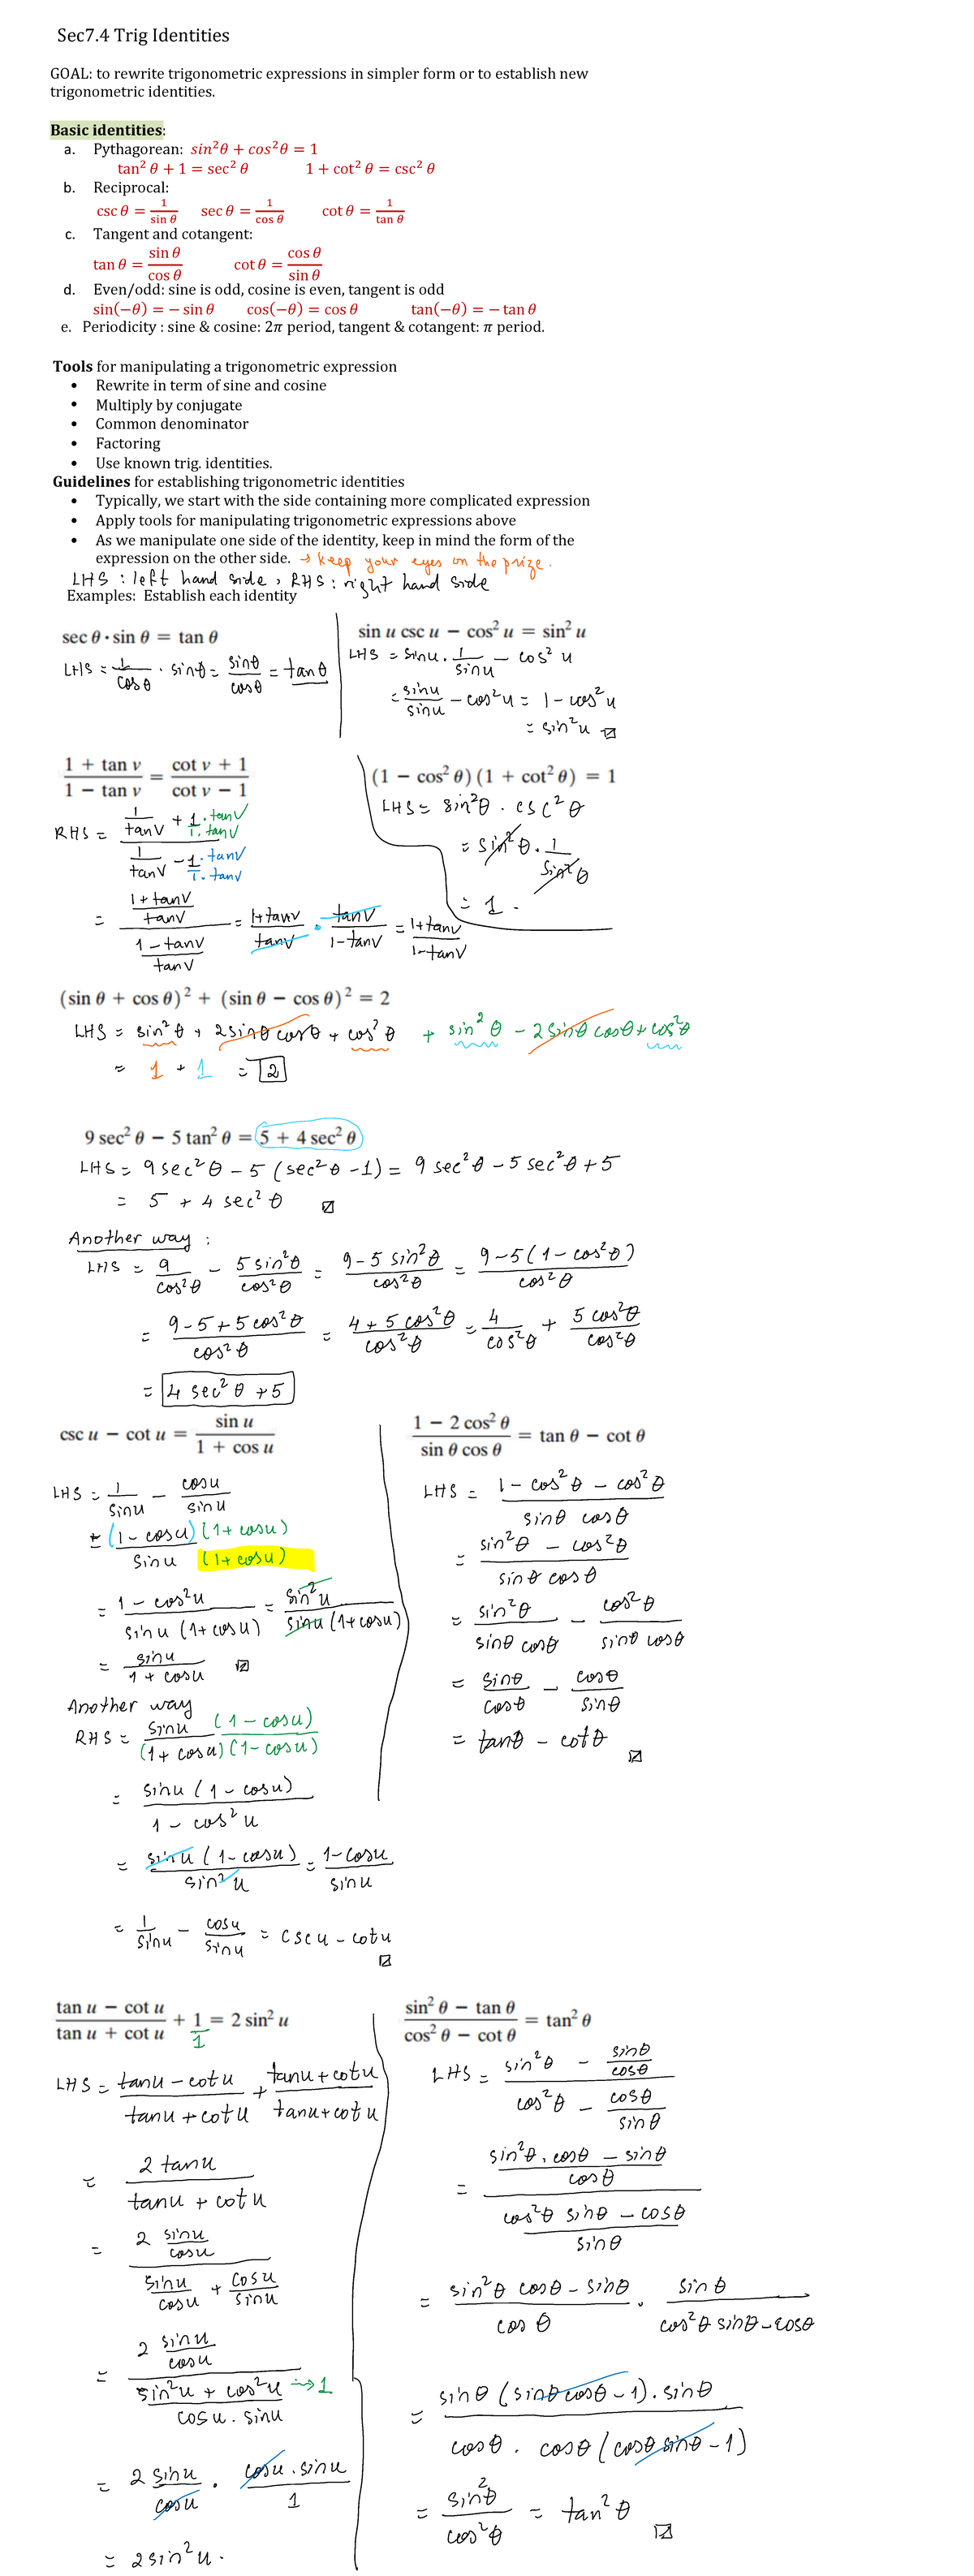 Sec7.4 Trig Identities
GOAL: to rewrite trigonometric expressions in simpler form or to establish new
trigonometric identities.
Basic identities:
a. Pythagorean: sin²θ + cos²θ = 1
tan² θ + 1 = sec² θ 1 + cot² θ = csc² θ
b. Reciprocal:
csc θ = 1/sin θ sec θ = 1/cos θ cot θ = 1/tan θ
c. Tangent and cotangent:
tan θ = sin θ/cos θ cot θ = cos θ/sin θ
d. Even/odd: sine is odd, cosine is even, tangent is odd
sin(−θ) = − sin θ cos(−θ) = cos θ tan(−θ) = − tan θ
e. Periodicity : sine & cosine: 2π period, tangent & cotangent: π period.
Tools for manipulating a trigonometric expression
• Rewrite in term of sine and cosine
• Multiply by conjugate
• Common denominator
• Factoring
• Use known trig. identities.
Guidelines for establishing trigonometric identities
• Typically, we start with the side containing more complicated expression
• Apply tools for manipulating trigonometric expressions above
• As we manipulate one side of the identity, keep in mind the form of the
expression on the other side. → keep your eyes on the prize.
LHS : left hand side, RHS : right hand side
Examples: Establish each identity
sec θ · sin θ = tan θ
LHS = 1/cosθ · sinθ = sinθ/cosθ = tanθ
sin u csc u − cos² u = sin² u
LHS = sinu · 1/sinu − cos² u
= sinu/sinu − cos²u = 1 − cos²u
= sin²u ☑
(1 + tan v)/(1 − tan v) = (cot v + 1)/(cot v − 1)
RHS = (1/tanv + 1·tanv/1·tanv)/(1/tanv − 1·tanv/1·tanv)
= ((1+tanv)/tanv)/((1−tanv)/tanv) = (1+tanv)/tanv · tanv/(1−tanv) = (1+tanv)/(1−tanv)
(1 − cos² θ)(1 + cot² θ) = 1
LHS = sin²θ · csc²θ
= sin²θ · 1/sin²θ
= 1.
(sin θ + cos θ)² + (sin θ − cos θ)² = 2
LHS = sin²θ + 2sinθ cosθ + cos²θ + sin²θ − 2sinθ cosθ + cos²θ
= 1 + 1 = 2
9 sec² θ − 5 tan² θ = 5 + 4 sec² θ
LHS = 9sec²θ − 5 (sec²θ −1) = 9 sec²θ − 5 sec²θ + 5
= 5 + 4 sec²θ ☑
Another way :
LHS = 9/cos²θ − 5sin²θ/cos²θ = (9−5 sin²θ)/cos²θ = (9−5(1−cos²θ))/cos²θ
= (9−5+5cos²θ)/cos²θ = (4+5cos²θ)/cos²θ = 4/cos²θ + 5cos²θ/cos²θ
= 4 sec²θ + 5
csc u − cot u = sin u/(1 + cos u)
LHS = 1/sinu − cosu/sinu
= (1−cosu)(1+cosu)/sinu (1+cosu)
= (1−cos²u)/(sinu (1+cosu)) = sin²u/(sinu (1+cosu))
= sinu/(1+cosu) ☑
Another way
RHS = sinu (1−cosu)/(1+cosu)(1−cosu)
= sinu (1−cosu)/(1−cos²u)
= sinu (1−cosu)/sin²u = (1−cosu)/sinu
= 1/sinu − cosu/sinu = cscu − cotu
☑
(1 − 2 cos² θ)/(sin θ cos θ) = tan θ − cot θ
LHS = (1−cos²θ − cos²θ)/(sinθ cosθ)
= (sin²θ − cos²θ)/(sinθ cosθ)
= sin²θ/(sinθ cosθ) − cos²θ/(sinθ cosθ)
= sinθ/cosθ − cosθ/sinθ
= tanθ − cotθ
☑
(tan u − cot u)/(tan u + cot u) + 1/1 = 2 sin² u
LHS = (tanu − cotu)/(tanu + cotu) + (tanu + cotu)/(tanu + cotu)
= 2 tanu/(tanu + cotu)
= (2 sinu/cosu)/(sinu/cosu + cosu/sinu)
= (2 sinu/cosu)/((sin²u + cos²u)/(cosu · sinu)) → 1
= 2 sinu/cosu · cosu · sinu/1
= 2sin²u.
(sin² θ − tan θ)/(cos² θ − cot θ) = tan² θ
LHS = (sin²θ − sinθ/cosθ)/(cos²θ − cosθ/sinθ)
= ((sin²θ · cosθ − sinθ)/cosθ)/((cos²θ sinθ − cosθ)/sinθ)
= (sin²θ cosθ − sinθ)/cosθ · sinθ/(cos²θ sinθ − cosθ)
= sinθ (sinθ cosθ − 1) · sinθ/(cosθ · cosθ (cosθ sinθ − 1))
= sin²θ/cos²θ = tan²θ
☑